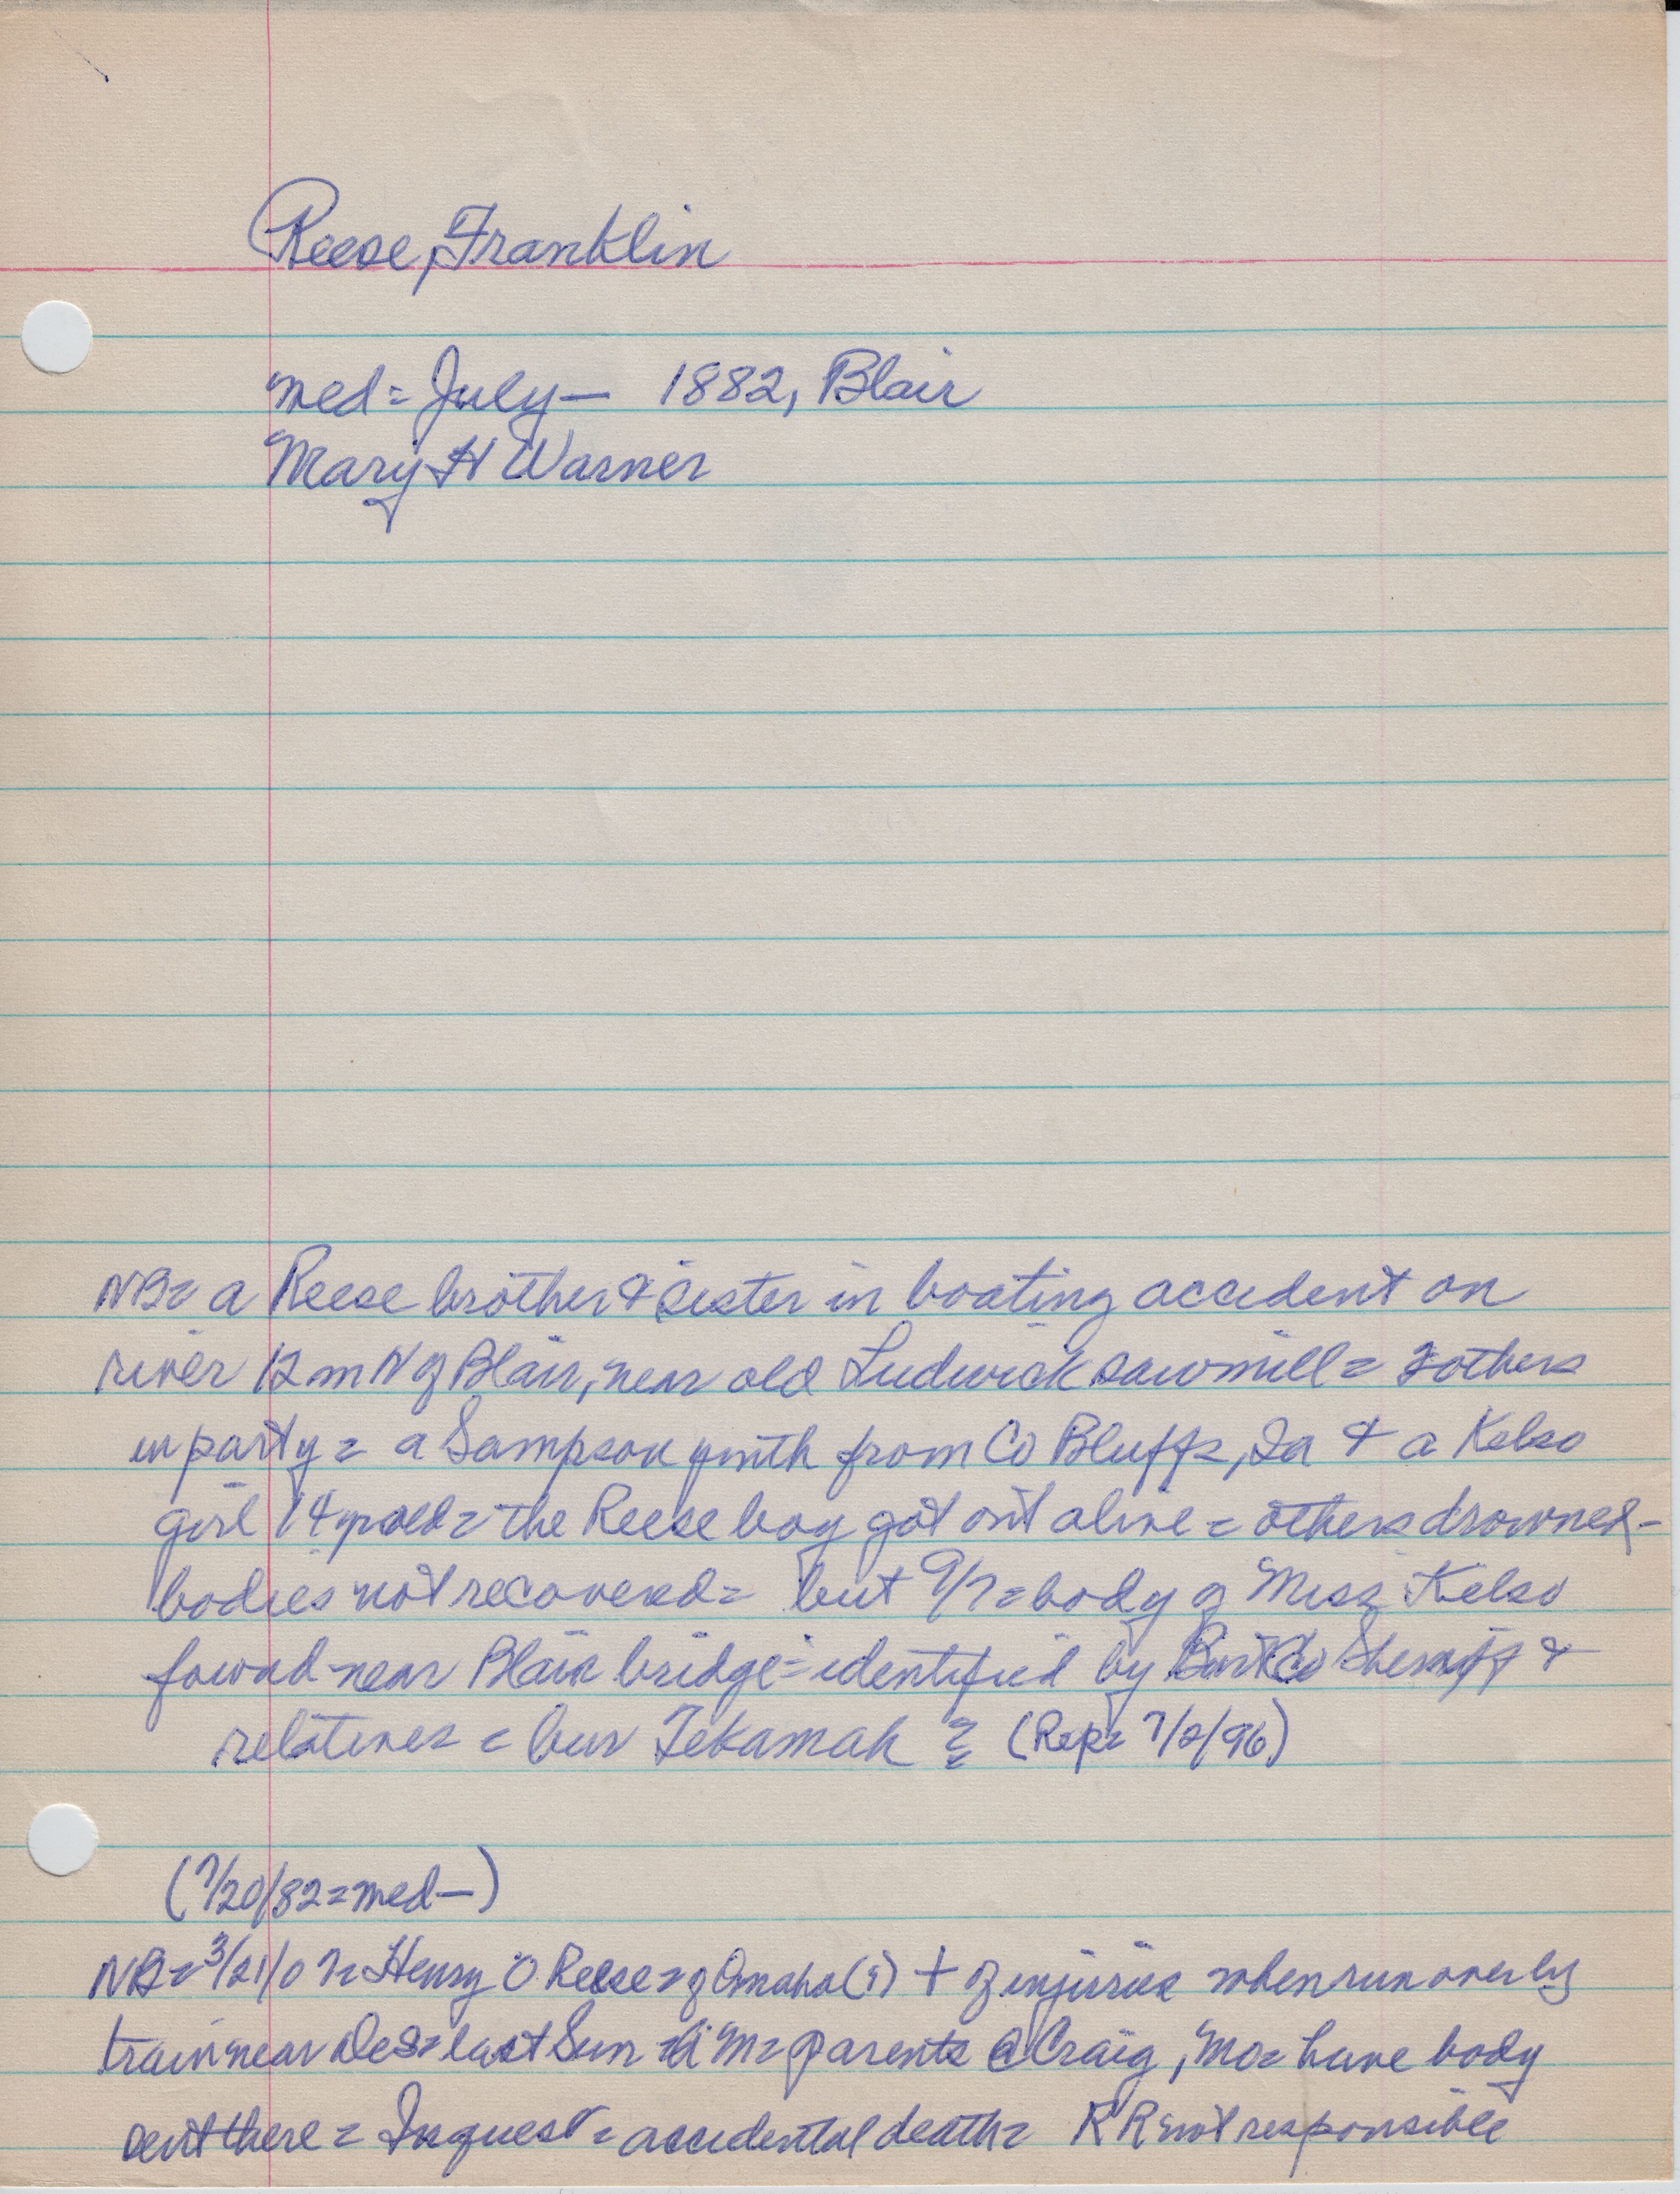 Reese, Franklin
med = July — 1882, Blair
Mary H Warner
NB = a Reese brother & sister in boating accident on
river 12 m N of Blair, near old Ludwick sawmill = 2 others
in party = a Sampson youth from Co Bluffs, Ia & a Kelso
girl 14 yr old = the Reese boy got out alive = others drowned -
bodies not recovered = but 9/7 = body of Miss Kelso
found near Blair bridge = identified by Burt Co Sheriff &
relatives = bur Tekamah = (Rep = 7/2/96)
(7/20/82 = med —)
NB = 3/21/07 = Henry O Reese = of Omaha (?) + of injuries when run over by
train near DeS = last Sun A M = parents @ Craig, Mo = have body
sent there = Inquest = accidental death = R R not responsible